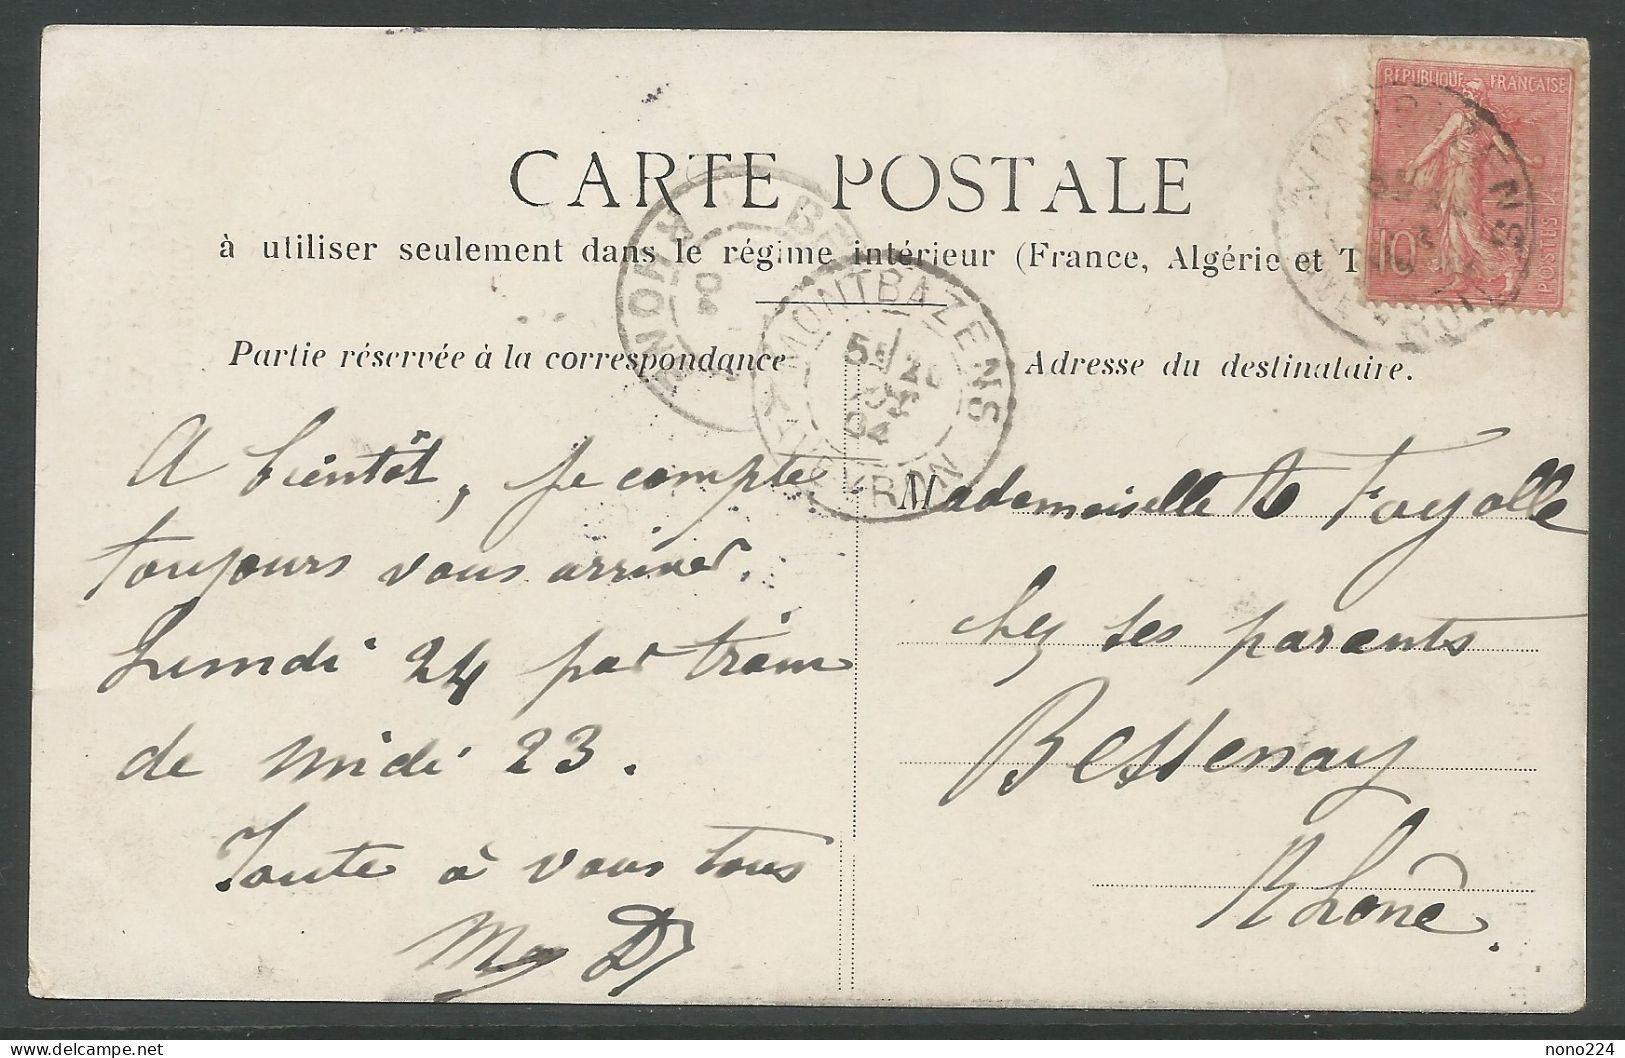 CARTE POSTALE
à utiliser seulement dans le régime intérieur (France, Algérie et T
Partie réservée à la correspondance
Adresse du destinataire.
REPUBLIQUE FRANÇAISE
10
POSTES
MONTBAZENS
AVEYRON
04
RHONE
A bientôt, je compte
toujours vous arriver
Lundi 24 par train
de midi 23.
Toute à vous tous
Mademoiselle A Fayolle
chez ses parents
Bessenay
Rhône.
nono224